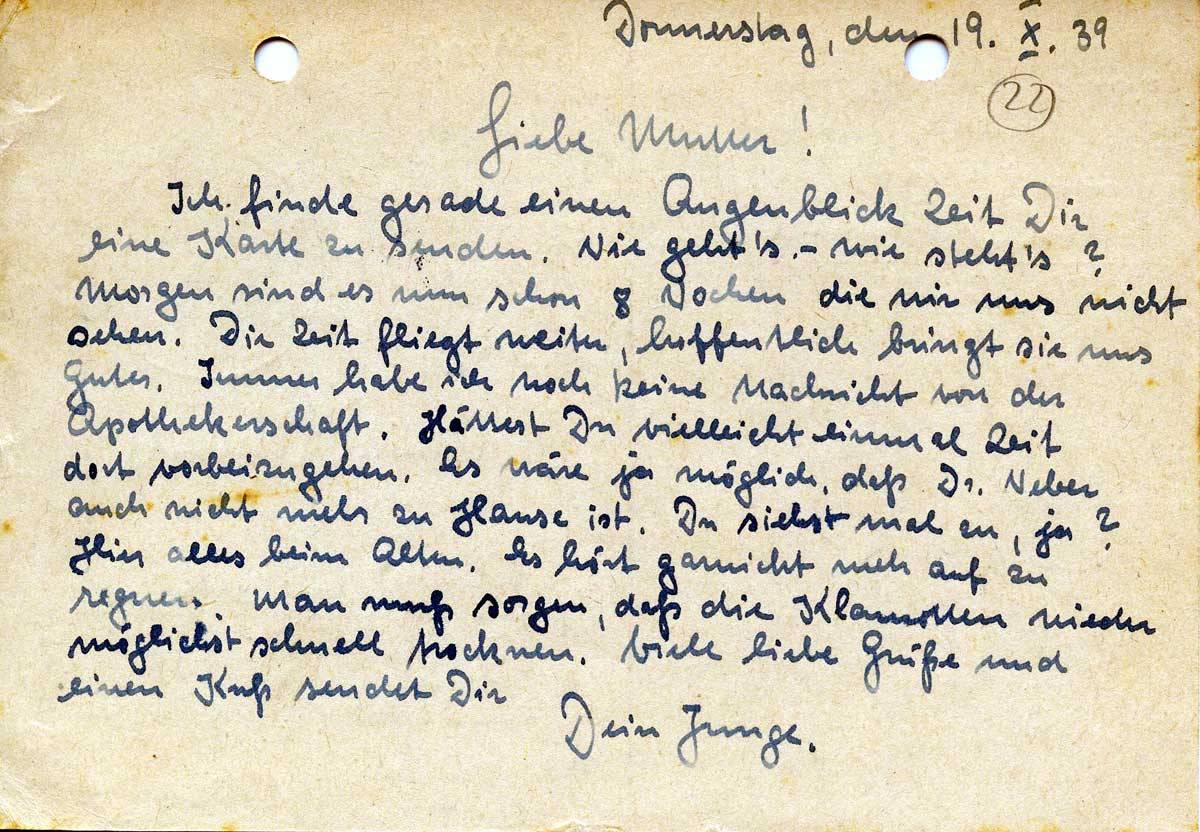 Donnerstag, den 19. X. 39
22
Liebe Mutter!
Ich finde gerade einen Augenblick Zeit Dir
eine Karte zu senden. Wie geht's - wie steht's?
Morgen sind es nun schon 8 Wochen die wir uns nicht
sehen. Die Zeit fliegt weiter, hoffentlich bringt sie uns
Gutes. Immer habe ich noch keine Nachricht von der
Apothekerschaft. Hättest Du vielleicht einmal Zeit
dort vorbeizugehen. Es wäre ja möglich, daß Dr. Weber
auch nicht mehr zu Hause ist. Du siehst mal zu, ja?
Hier alles beim Alten. Es hört garnicht mehr auf zu
regnen. Man muß sorgen, daß die Klamotten wieder
möglichst schnell trocknen. Viele liebe Grüße und
einen Kuß sendet Dir
Dein Junge.